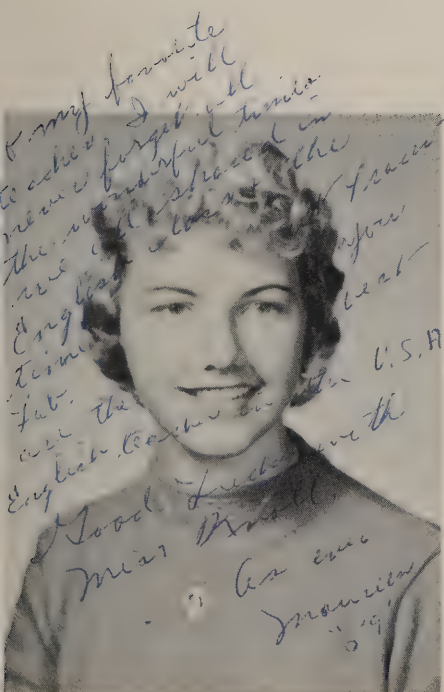 o my favorite
teacher I will
never forget all
the wonderful times
we all shared in
English class & the
time
Fab. you
are the best
English teacher in the U.S.A
Good Luck with
Miss
As ever
Maurien
'59'